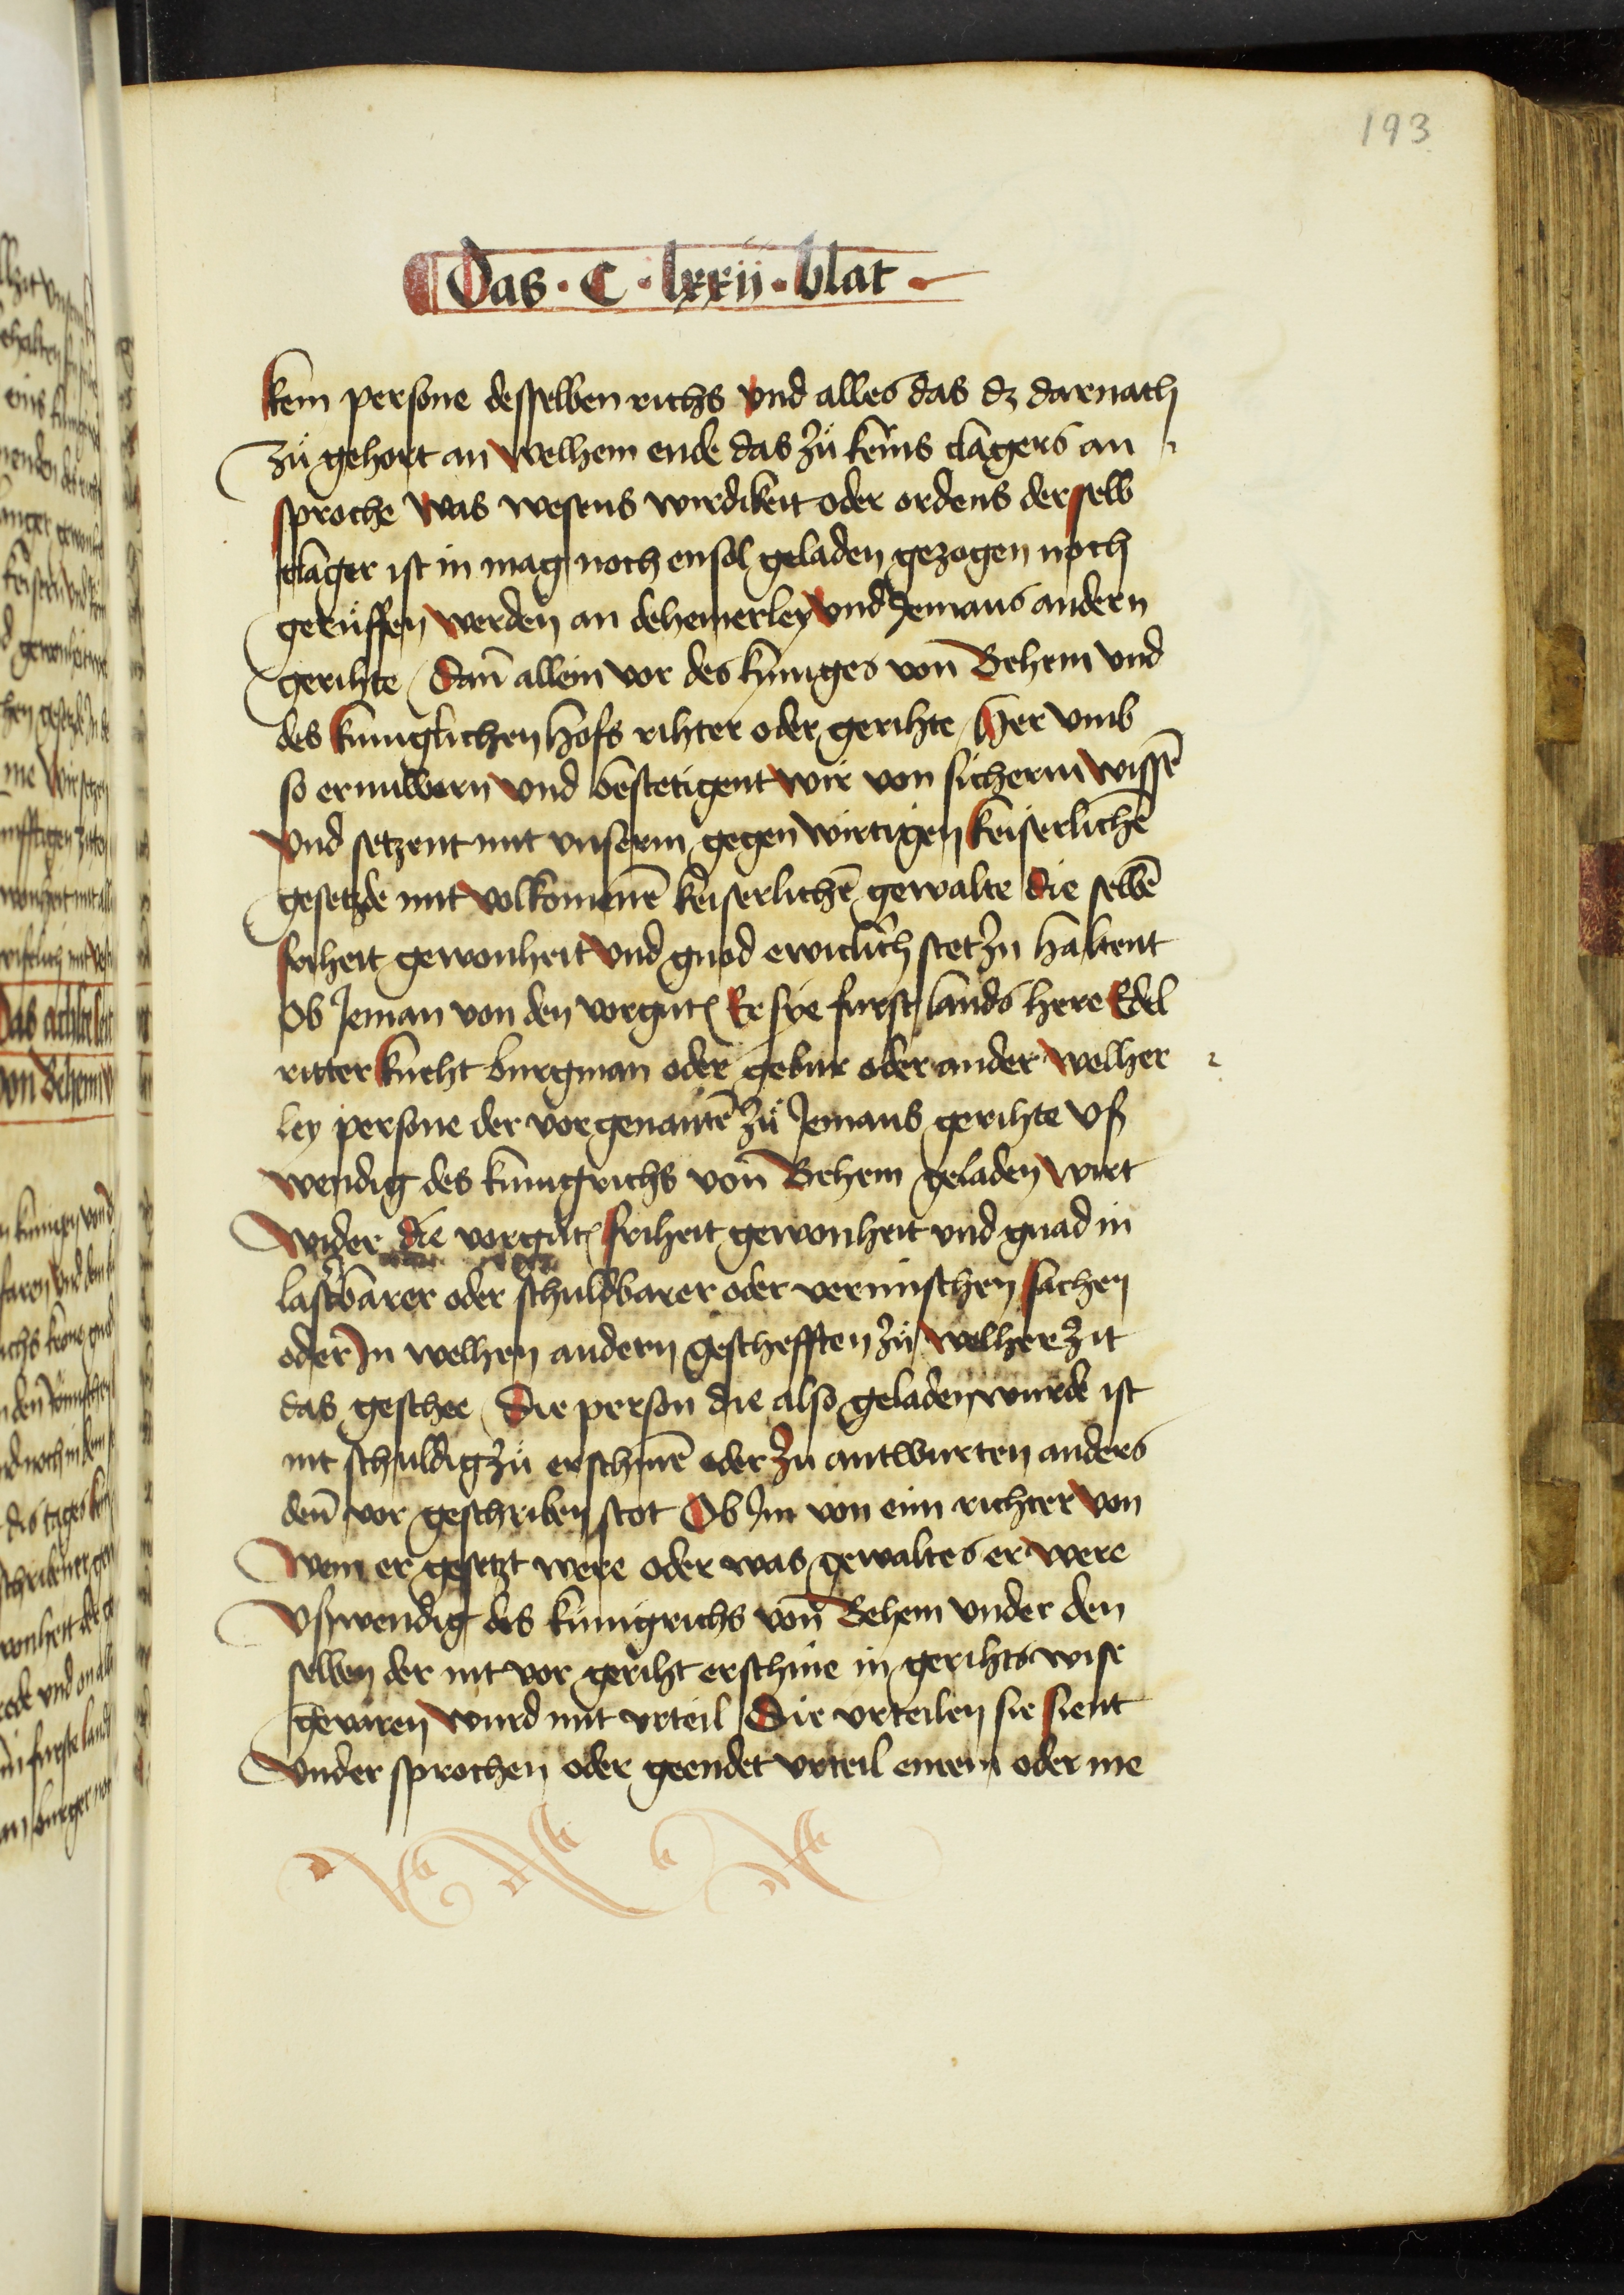 193
Das · C · lxxii · blat
kein persone desselben richs vnd alles das dz darnach
zů gehort an welhem ende das zů keins clagers an
sproche was wesens wirdikeit oder ordens derselb
clager ist in mag noch ensol geladen gezogen noch
gerůffen werden an dehemerley vnd Jemans andern
gerihte dañ allein vor des kuniges von Behem vnd
des kuniglichen hofs rihter oder gerihte her vmb
so ernuwern vnd bestetigent wir von sicherm wissē
vnd setzent mit vnserm gegenwirtigen keiserlichē
gesetzde mit volkomenē keiserlichē gewalte die selbē
friheit gewonheit vnd gnod ewiclich stet zu haltent
Ob Jeman von den vorgntē Er sye furst lands here Edel
ritter kneht burgman oder gebur oder ander welher
ley persone der vorgenantē zů Jemans gerihte vß
wendig des kunigrichs von Behem geladen wirt
wider die vorgntē friheit gewonheit vnd gnad in
lastbarer oder schuldbarer oder vermischen sachen
oder In welhen andern geschefften zů welher zit
das geschee Die person die also geladen wurde ist
nit schuldig zů erschinē oder zu antwurten anders
deñ vor geschriben stot Ob Im von eim richter von
wem er gesetzt were oder was gewaltes er were
vßwendig des kunigrichs von Behem vnder den
selben der nit vor geriht erschine in gerihts wise
gevaren wurd mit vrteil Die vrteilen sie sient
vnder sprochen oder geendet vrteil einem oder me